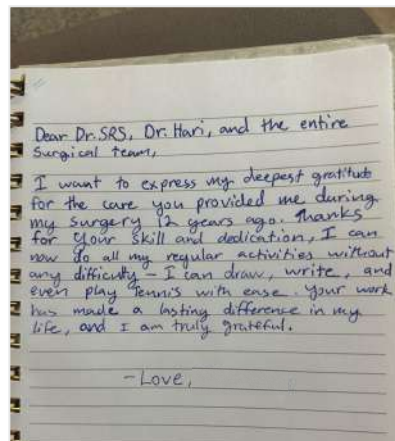 Dear Dr.SRS, Dr.Hari, and the entire
Surgical team,
I want to express my deepest gratitude
for the care you provided me during
my surgery 12 years ago. Thanks
for your skill and dedication, I can
now do all my regular activities without
any difficulty - I can draw, write, and
even play Tennis with ease. Your work
has made a lasting difference in my
life, and I am truly grateful.
- Love,